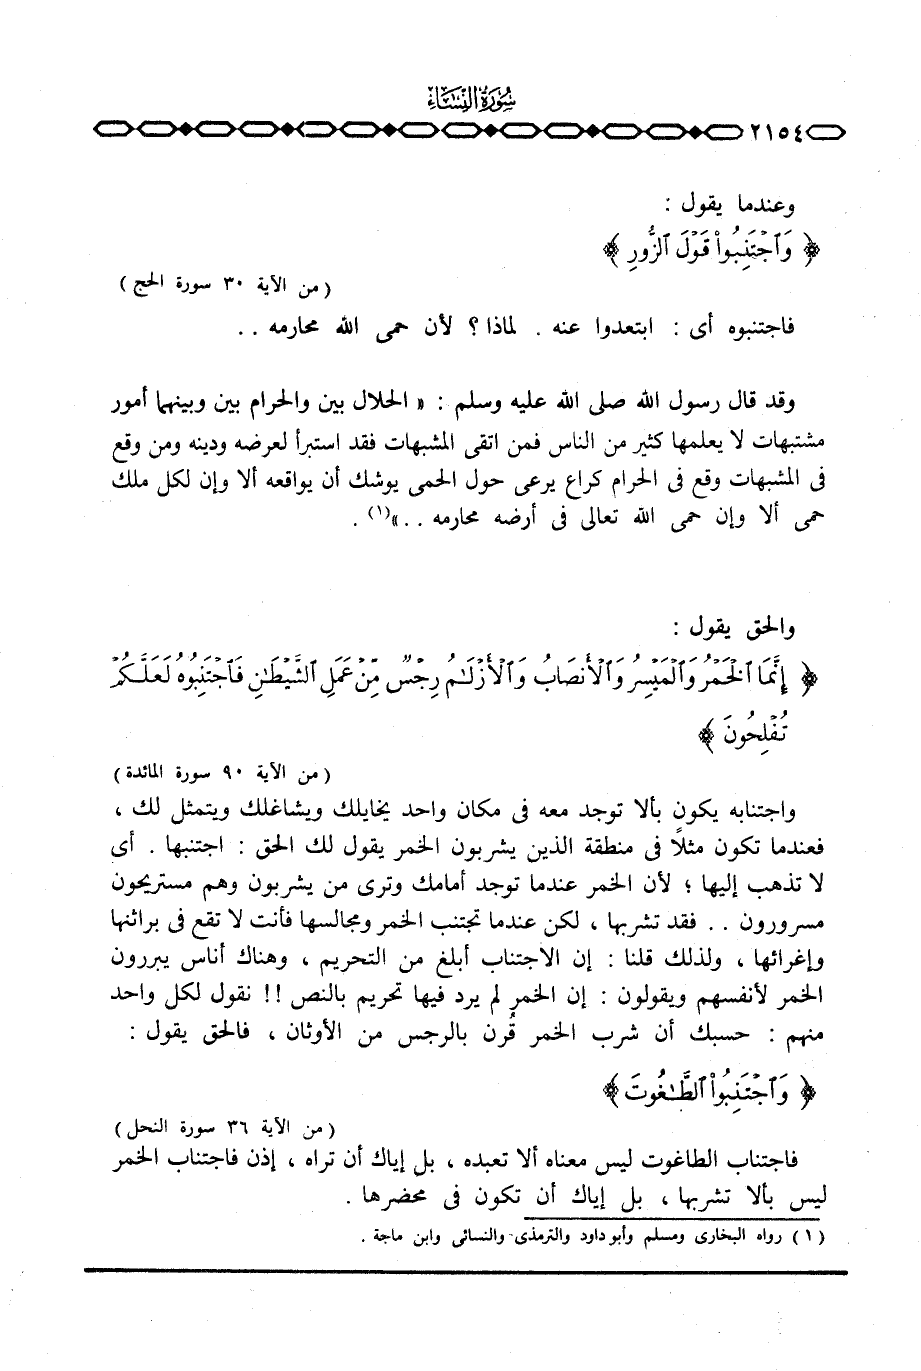 سُورَةُ النِّسَاءِ
٢١٥٤
وعندما يقول :
﴿ وَٱجْتَنِبُوا۟ قَوْلَ ٱلزُّورِ ﴾
( من الآية ٣٠ سورة الحج )
فاجتنبوه أى : ابتعدوا عنه . لماذا ؟ لأن حمى الله محارمه . .
وقد قال رسول الله صلى الله عليه وسلم : « الحلال بين والحرام بين وبينهما أمور
مشتبهات لا يعلمها كثير من الناس فمن اتقى المشبهات فقد استبرأ لعرضه ودينه ومن وقع
فى المشبهات وقع فى الحرام كراع يرعى حول الحمى يوشك أن يواقعه ألا وإن لكل ملك
حمى ألا وإن حمى الله تعالى فى أرضه محارمه . . »(١) .
والحق يقول :
﴿ إِنَّمَا ٱلْخَمْرُ وَٱلْمَيْسِرُ وَٱلْأَنصَابُ وَٱلْأَزْلَٰمُ رِجْسٌ مِّنْ عَمَلِ ٱلشَّيْطَٰنِ فَٱجْتَنِبُوهُ لَعَلَّكُمْ
تُفْلِحُونَ ﴾
( من الآية ٩٠ سورة المائدة )
واجتنابه يكون بألا توجد معه فى مكان واحد يخايلك ويشاغلك ويتمثل لك ،
فعندما تكون مثلاً فى منطقة الذين يشربون الخمر يقول لك الحق : اجتنبها . أى
لا تذهب إليها ؛ لأن الخمر عندما توجد أمامك وترى من يشربون وهم مستريحون
مسرورون . . فقد تشربها ، لكن عندما تجتنب الخمر ومجالسها فأنت لا تقع فى براثنها
وإغرائها ، ولذلك قلنا : إن الاجتناب أبلغ من التحريم ، وهناك أناس يبررون
الخمر لأنفسهم ويقولون : إن الخمر لم يرد فيها تحريم بالنص !! نقول لكل واحد
منهم : حسبك أن شرب الخمر قُرن بالرجس من الأوثان ، فالحق يقول :
﴿ وَٱجْتَنِبُوا۟ ٱلطَّٰغُوتَ ﴾
( من الآية ٣٦ سورة النحل )
فاجتناب الطاغوت ليس معناه ألا تعبده ، بل إياك أن تراه ، إذن فاجتناب الخمر
ليس بألا تشربها ، بل إياك أن تكون فى محضرها .
( ١ ) رواه البخارى ومسلم وأبو داود والترمذى والنسائى وابن ماجة .